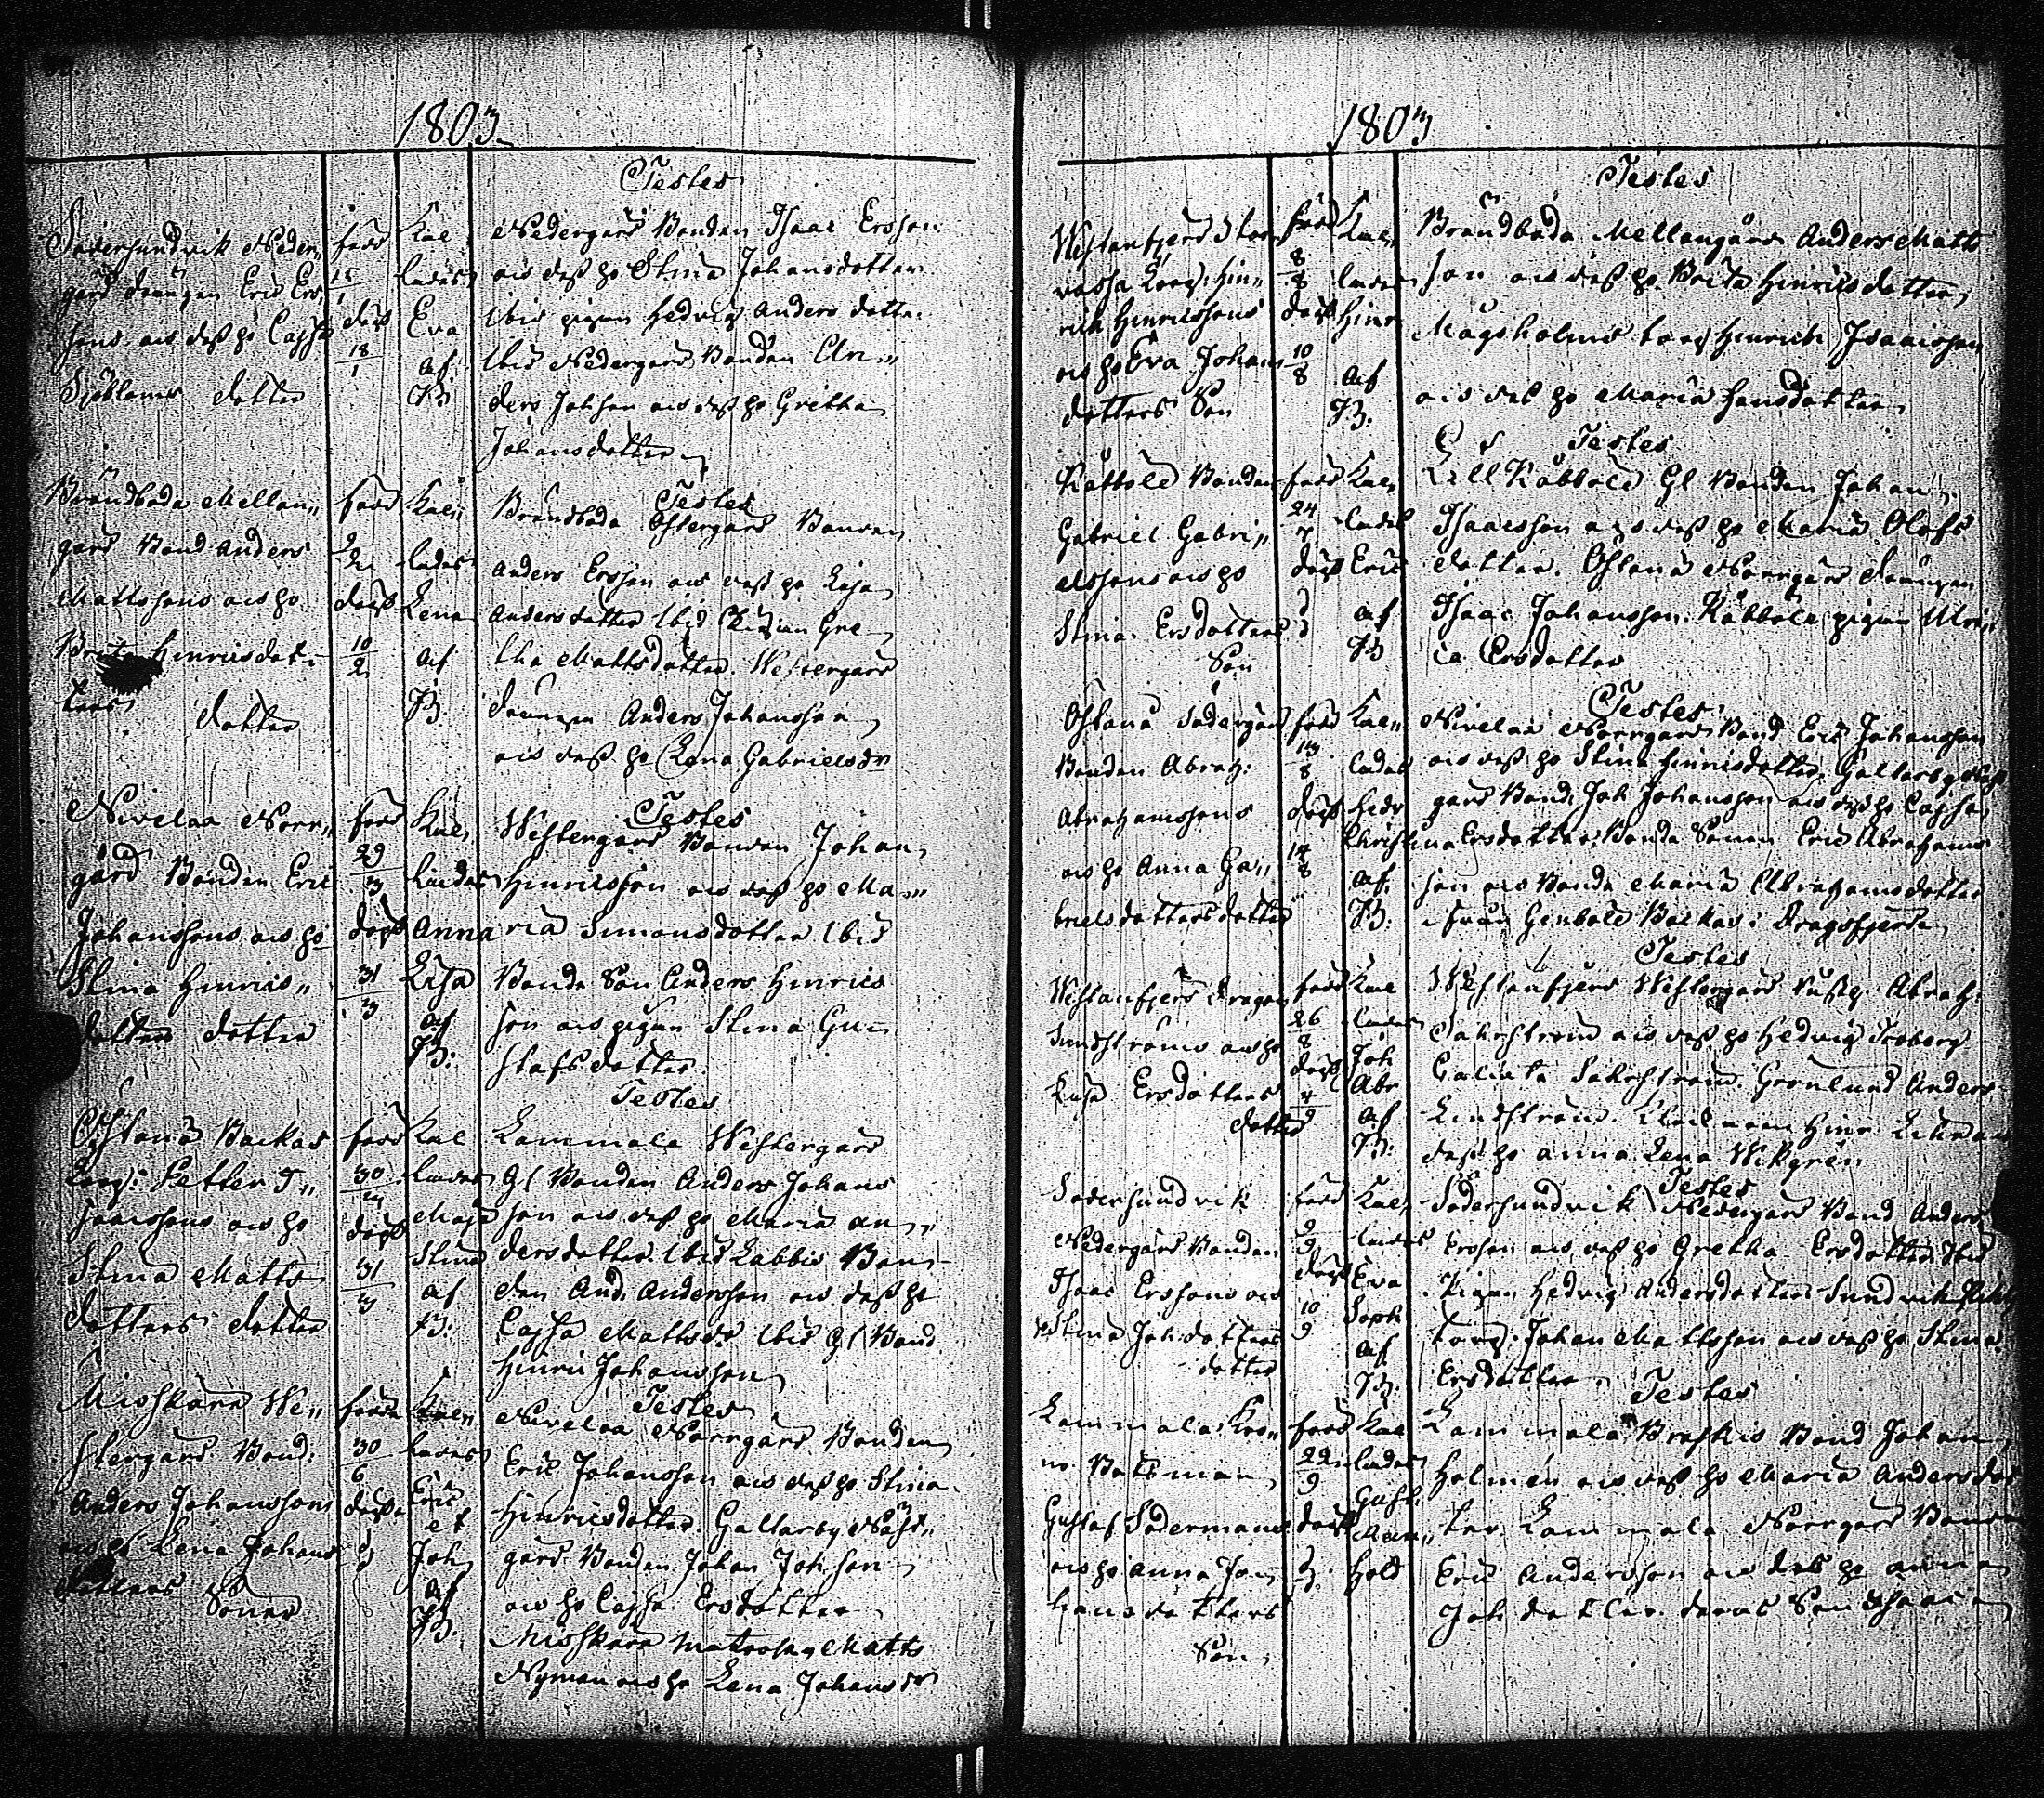 1803
Testes
Södersundvik Neder„
gård drängen Eric Ers„
sons och dess ho Cajsa
Sjöbloms dotter
född
15
1
döpt
18
1
Kal
lades
Eva
af
B
Nedergård Bonden Isaac Ersson
och dess ho Stina Johansdotter
Ibid pigan Hedvig Anders dotter
Ibid Nedergård Bonden An„
ders Johsson och dess ho Gretha
Johansdotter
Brändboda Mellan„
gård Bond Anders
Mattssons och ho
Brita Hinricsdot„
ters
dotter
född
9
2
döpt
10
2
Kal„
lades
Lena
af
B
Testes
Brändboda Östergård Bonden
Anders Ersson och dess ho Caisa
Andersdotter Ibid Pigan Gre„
tha Mattsdotter Westergård
drängen Anders Johansson
och dess ho Lena Gabrielsdr
Nivelaa Norr„
gård Bonden Eric
Johanssons och ho
Stina Hinrics„
dotters dotter
född
29
3
döpt
31
3
Kal„
lades
Anna
Lisa
af
B:
Testes
Westergård Bonden Johan
Hinricsson och dess ho Ma„
ria Simonsdotter Ibid
Bonde Son Anders Hinrics
son och pigan Stina Gu„
stafsdotter.
Östanå Backas
Torp: Petter I„
saacssons och ho
Stina Matts
dotters dotter
född
30
3
döpt
31
3
Kal
lades
Maja
Stina
af
B:
Testes
Lammala Westergård
Gl Bonden Anders Johans
son och dess ho Maria An„
dersdotter. Ibid Labbis Bon„
den And. Andersson och dess ho
Cajsa Mattsdr Ibid Gl Bond
Hinric Johansson
Misskärr We„
stergård Bond:
Anders Johanssons
och ho Lena Johans
dotters
Söner
född
30
6
döpta
Kal„
lades
Eric
et
Joh
af
B.
Testes
Nivelaa Norrgård Bonden
Eric Johansson och dess ho Stina
Hinricsdotter. Galtarby Näst„
gård Bonden Johan Johsson
och ho Cajsa Ersdotter
Misskärr Matrosen Matts
Nyman och ho Lena Johansdr
1803
Testes
Westanfjerd Stor
Torp: Hin„
rich Hinricssons
och ho Eva Johans
dotters Son
född
8
8
döpt
10
8
Kal„
lades
Hinr
af
B.
Brändboda Mellangård Anders Matts
son och dess ho Brita Hinricsdotter
Mågsholms torp Hinrich Isaacsson
och dess ho Maria Hansdotter
Råttböle Bonden
Gabriel Gabri„
elssons och ho
Stina Ersdotters
Son
född
24
7
döpt
Kal„
lades
Eric
af
B
Testes
Lill Råbböle Gl Bonden Johan
Isaacsson och dess ho Maria Olofs
dotter. Östanå Norrgård drängen
Isaac Johansson. Råbböle pigan Ulri„
ca Ersdotter
Östanå Södergård
Bonden Abrah:
Abrahamssons
och ho Anna Ga„
brielsdotters dotter
född
13
8
döpt
14
8
Kal„
lades
Hedv
Christina
af
B.
Testes
Nivelaa Norrgård Bond Eric Johansson
och dess ho Stina Hinricsdotter Galtarby Näst
gård Bond. Joh Johansson och dess ho Cajsa
Ersdotter, Bonde Sonen Eric Abrahams
son och Bonde Maria Abrahamsdotter
ifrån Genböle Backas i Dragsfjerd
Westanfjerd Dragon
Sundströms och ho
Lisa Ersdotters
dotter
född
26
8
döpt
4
9
Kal
lades
Joh
Abr
af
B:
Testes
Westanfjerd Westergård Rusth. Abrah:
Sahlström och dess ho Hedvig Broberg
Lindström.
dess ho Anna Lena Wikgren
Södersundvik
Nedergård Bonden
Isaac Erssons och
ho Stina Joh dotters
dotter
född
9
9
döpt
10
9
Kal„
lades
Eva
Soph
af
B.
Testes
Södersundvik Nedergård Bond Anders
Ersson och dess ho Gretha Ersdotter Ibid
Pigan Hedvig Andersdotter Sundvik
torp: Johan Mattsson och dess ho Stina
Ersdotter
Lammala Kro„
no Båtsman
Gustaf Södermans
och ho Anna Jo„
hansdotters
Son
född
22
9
döpt
Kal
lades
Gust.
Man„
hold
Testes
Lammala Broskis Bond Johan
Holmén och dess ho Maria Andersdot
ter. Lammala Norrgård Bonden
Eric Andersson och dess ho Anna
Joh dotter. deras Son Isaac